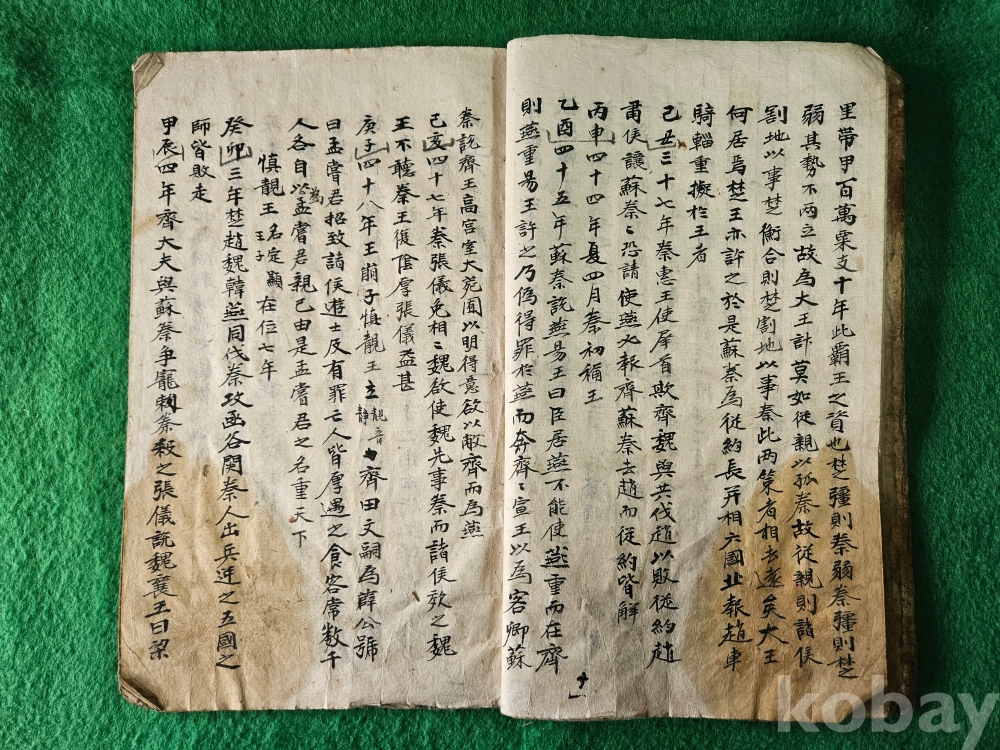 里帶甲百萬粟支十年此覇王之資也楚彊則秦弱秦彊則楚
弱其勢不兩立故為大王計莫如從親以孤秦故從親則諸侯
割地以事楚衡合則楚割地以事秦此兩策者相去遠矣大王
何居焉楚王亦許之於是蘇秦為從約長幷相六國北報趙車
騎輜重擬於王者
己丑三十七年秦惠王使犀首欺齊魏與共伐趙以敗從約趙
肅侯讓蘇秦〻恐請使燕必報齊蘇秦去趙而從約皆解
丙申四十四年夏四月秦初稱王
乙酉四十五年蘇秦說燕易王曰臣居燕不能使燕重而在齊
則燕重易王許之乃偽得罪於燕而奔齊〻宣王以為客卿蘇
十一
秦說齊王高宮室大苑囿以明得意欲以敝齊而為燕
己亥四十七年秦張儀免相〻魏欲使魏先事秦而諸侯效之魏
王不聽秦王復陰厚張儀益甚
庚子四十八年王崩子慎靚王立 靚音靜 齊田文嗣為薛公號
曰孟嘗君招致諸侯遊士及有罪亡人皆厚遇之食客常數千
人各自以為孟嘗君親己由是孟嘗君之名重天下
慎靚王 名定顯王子 在位七年
癸卯三年楚趙魏韓燕同伐秦攻函谷関秦人出兵逆之五國之
師皆敗走
甲辰四年齊大夫與蘇秦爭寵刺秦殺之張儀說魏襄王曰梁
kobay